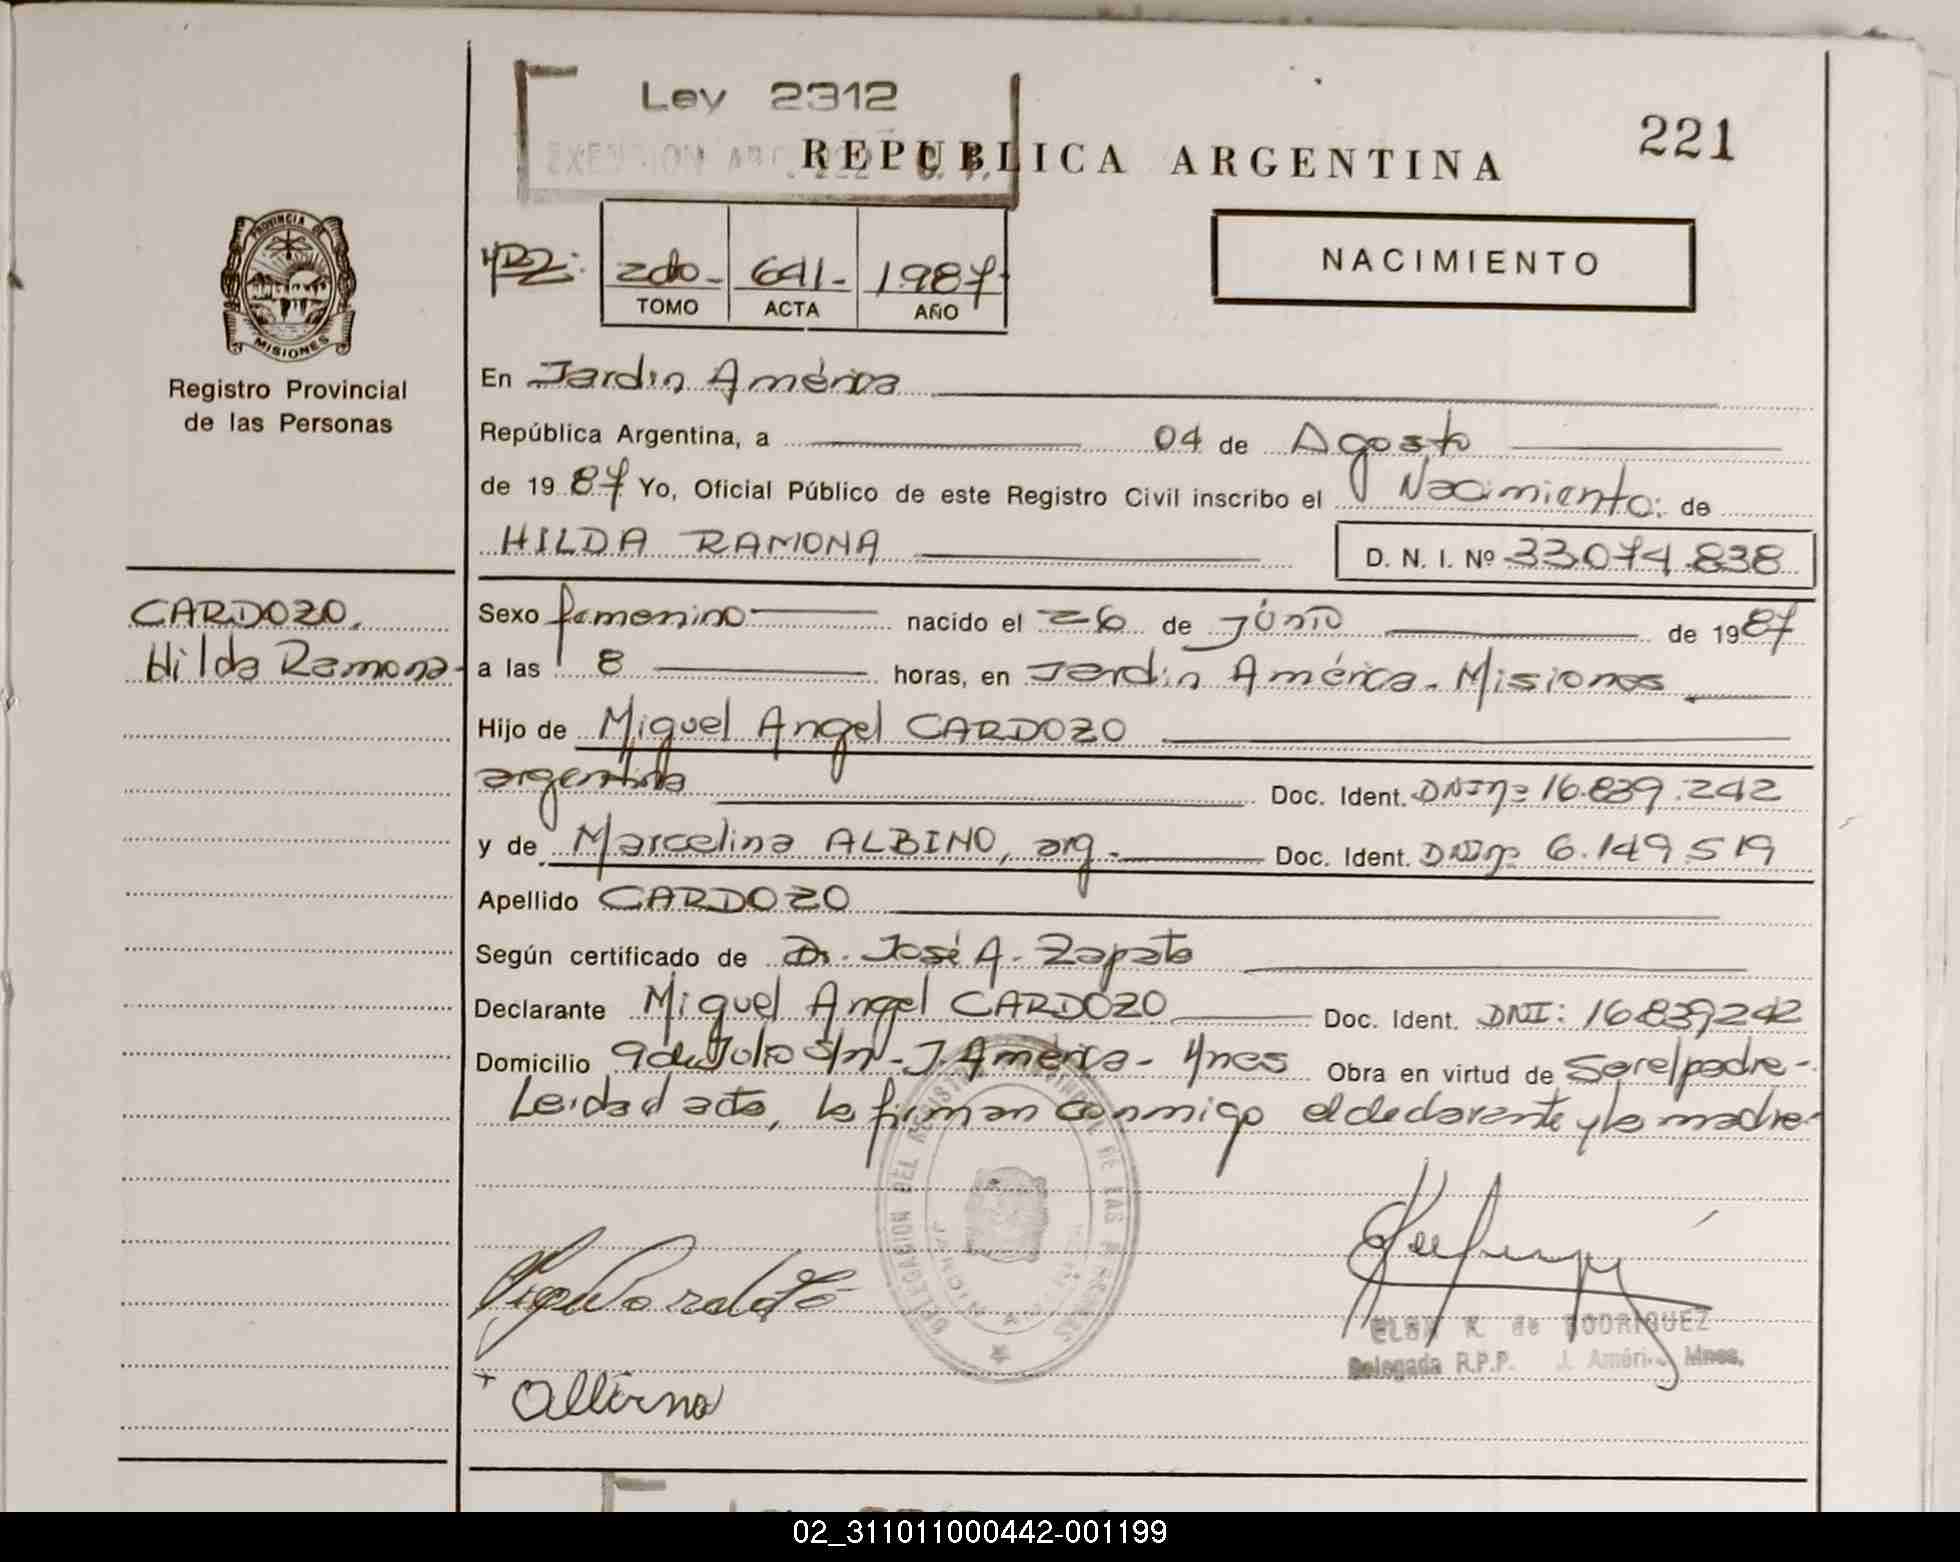 Ley 2312
221
REPUBLICA ARGENTINA
PROVINCIA DE
MISIONES
NACIMIENTO
2do- 641- 1987
TOMO ACTA AÑO
Registro Provincial
de las Personas
En Jardín América
República Argentina, a 04 de Agosto
de 1987 Yo, Oficial Público de este Registro Civil inscribo el Nacimiento: de
HILDA RAMONA D. N. I. Nº 33.074.838
CARDOZO,
Hilda Ramona-
Sexo femenino nacido el 26 de Junio de 1987
a las 8 horas, en Jardín América - Misiones
Hijo de Miguel Angel CARDOZO
argentina Doc. Ident. DNI nº 16.839.242
y de Marcelina ALBINO, arg. Doc. Ident. DNI nº 6.149.519
Apellido CARDOZO
Según certificado de Dr. José A. Zapata
Declarante Miguel Angel CARDOZO Doc. Ident. DNI: 16839242
Domicilio 9 de Julio S/n - J. América - Mnes Obra en virtud de Ser el padre-
Leida el acta, la firman conmigo el declarante y la madre-
DELEGACION DEL REGISTRO PROVINCIAL DE LAS PERSONAS
K. de RODRIGUEZ
Delegada R.P.P. J. América Mnes.
Albino
02_311011000442-001199